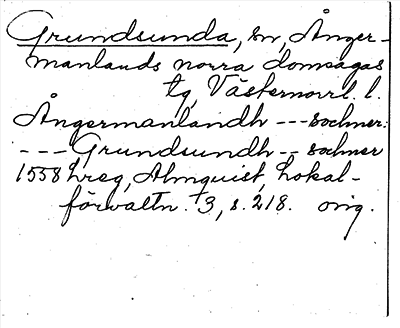 Grundsunda, sn, Ånger-
manlands norra domsagas
tg, Västernorrl. l.
Ångermanlandh --- sochner:
--- Grundsundh -- sochner
1558 Lreg, Almquist, Lokal-
förvaltn. 3, s. 218. orig.